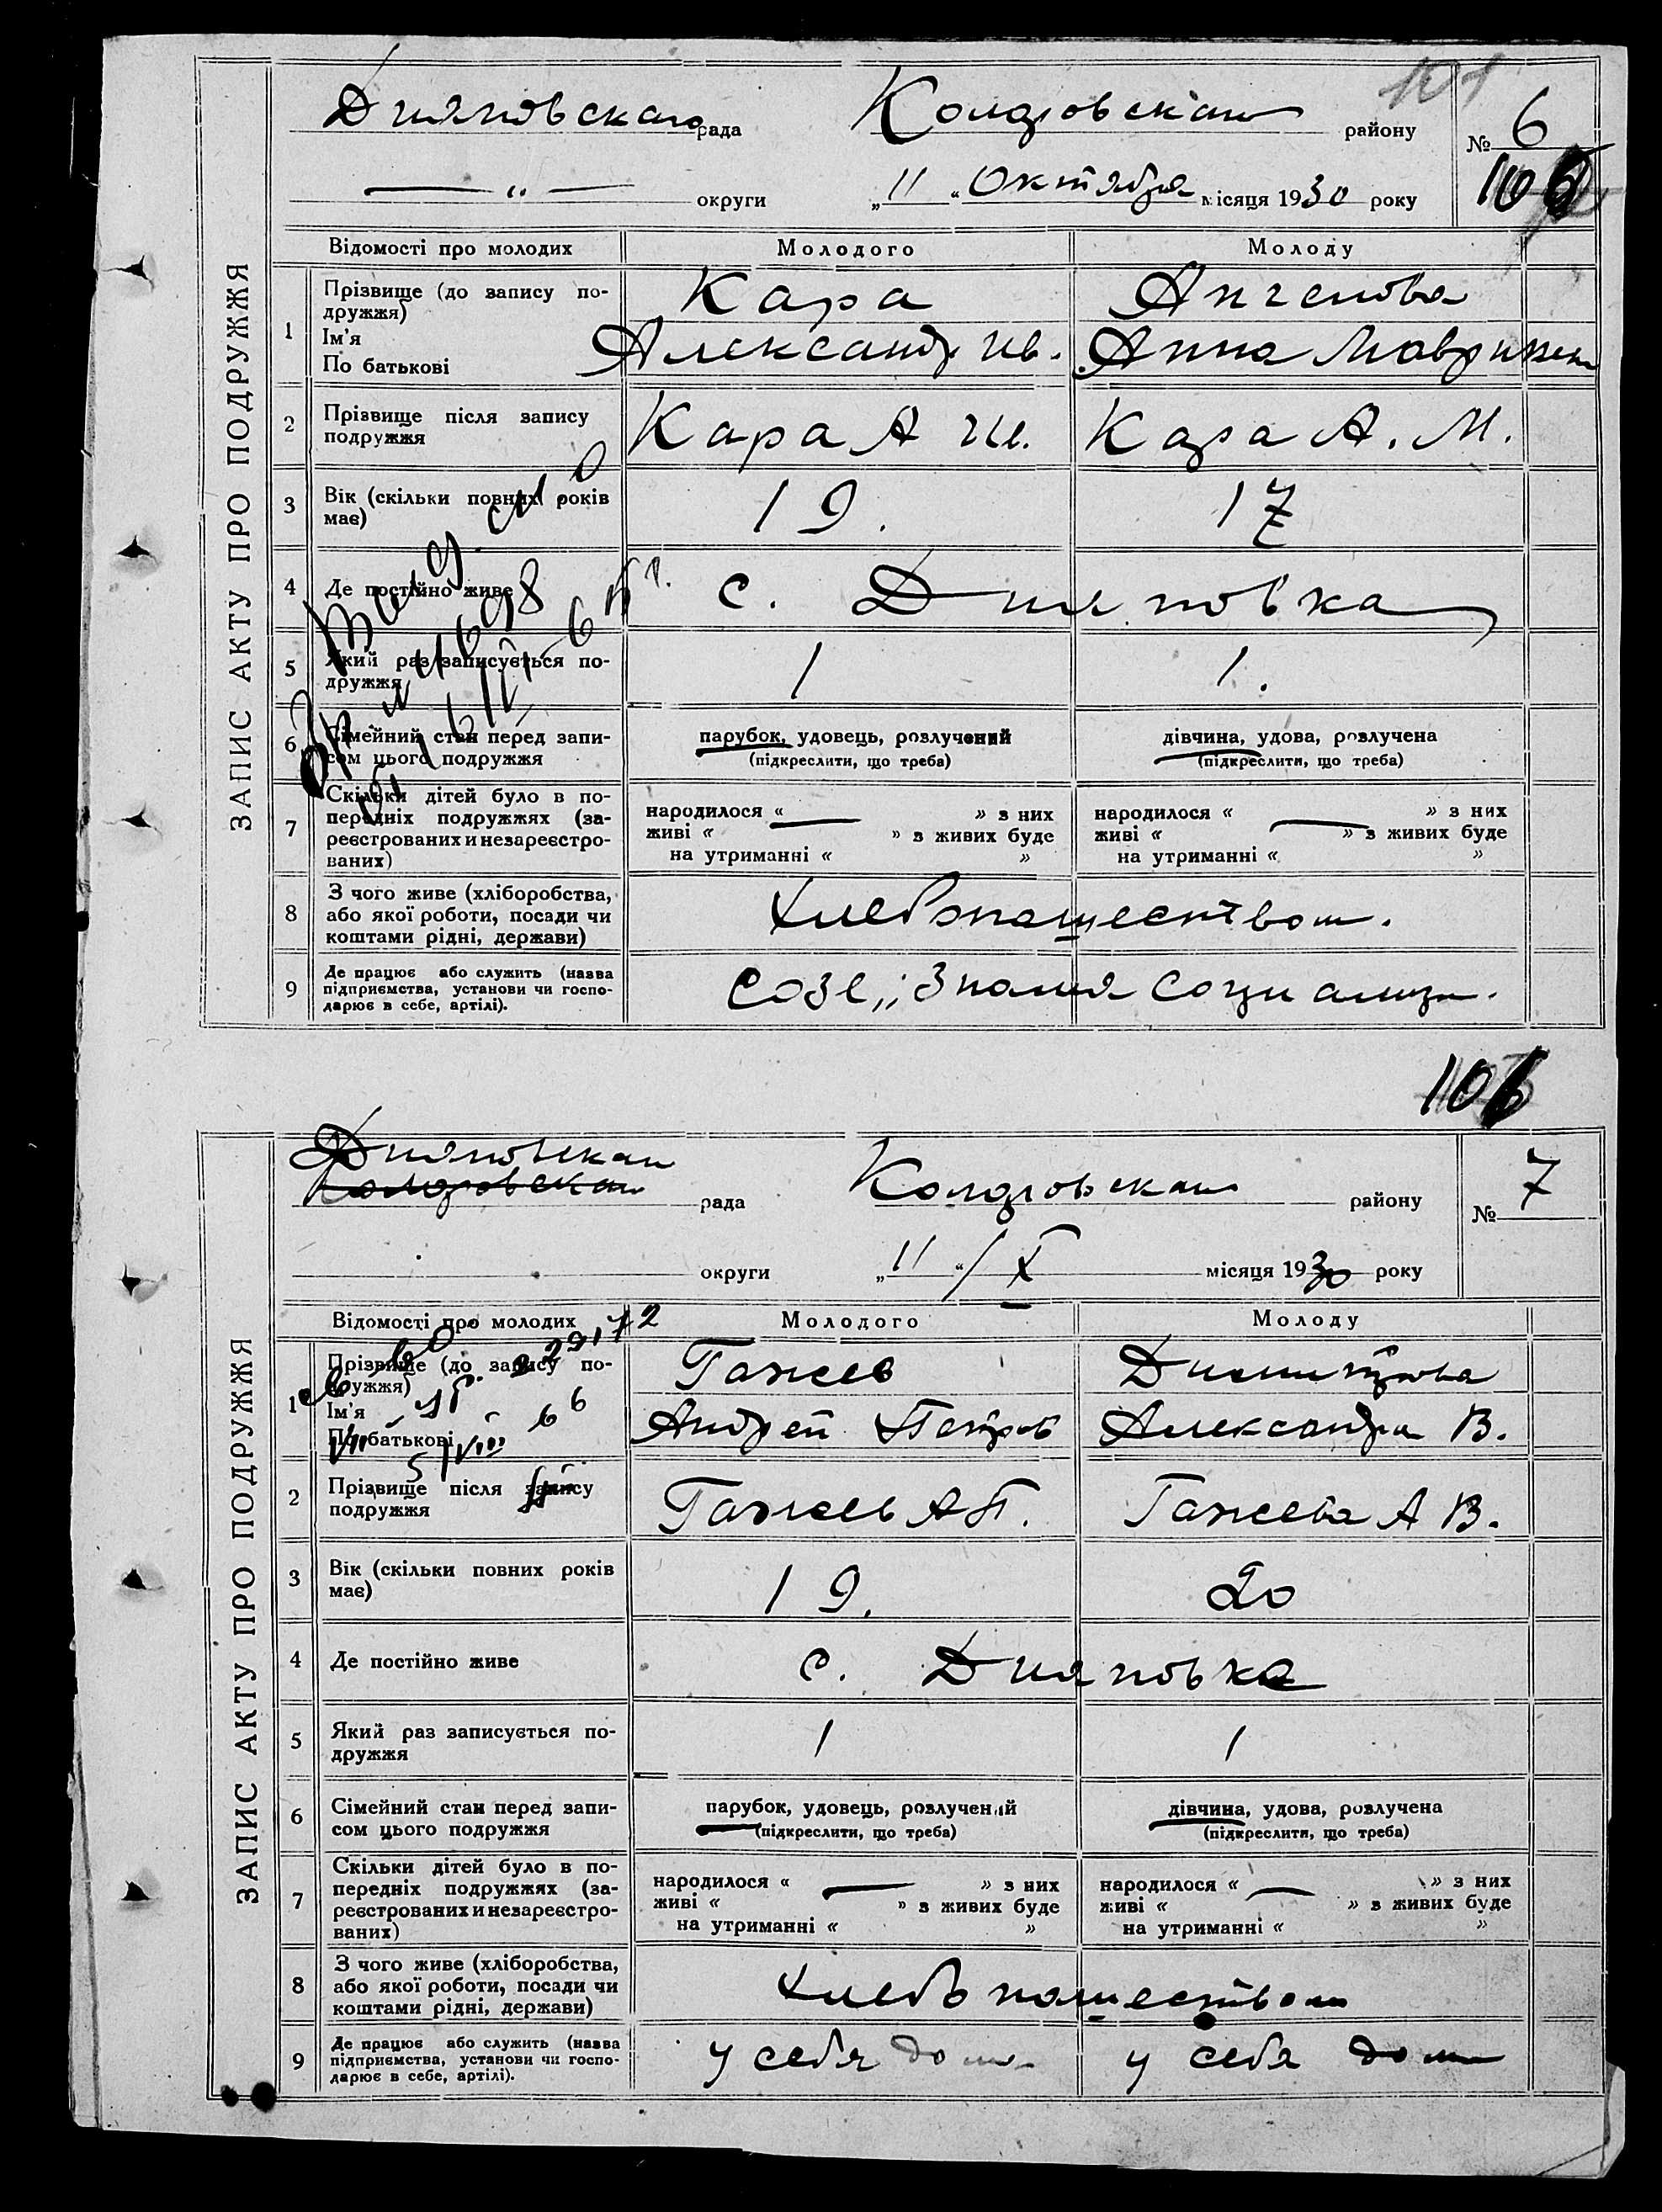 101
Дияновская рада Коларовский району № 6
— „ — округи „11“ Октября місяця 1930 року 106
ЗАПИС АКТУ ПРО ПОДРУЖЖЯ
Відомості про молодих Молодого Молоду
1 Прізвище (до запису по-
дружжя) Кара Ангелова
Ім'я
По батькові Александр Ив. Анна
2 Прізвище після запису
подружжя Кара А Ив. Кара А. М.
3 Вік (скільки повних років
має) 19. 17
4 Де постійно живе с. Дияновка
5 Який раз записується по-
дружжя 1 1.
6 Сімейний стан перед запи-
сом цього подружжя
парубок, удовець, розлучений
(підкреслити, що треба)
дівчина, удова, розлучена
(підкреслити, що треба)
7 Скільки дітей було в по-
передніх подружжях (за-
реєстрованих и незареєстро-
ваних)
народилося « — » з них
живі « » з живих буде
на утриманні « »
народилося « — » з них
живі « » з живих буде
на утриманні « »
8 З чого живе (хліборобства,
або якої роботи, посади чи
коштами рідні, держави) хлебопашеством.
9 Де працює або служить (назва
підприємства, установи чи госпо-
дарює в себе, артілі). созе „Знамя Социализм.
106
Дияновская
Коларовская рада Коларовский району № 7
округи „11“ / X місяця 1930 року
ЗАПИС АКТУ ПРО ПОДРУЖЖЯ
Відомості про молодих Молодого Молоду
1 Прізвище (до запису по-
дружжя) Гажев Димитрова
Ім'я
По батькові Андрей Петров Александра В.
2 Прізвище після запису
подружжя Гажев А П. Гажева А В.
3 Вік (скільки повних років
має) 19. 20
4 Де постійно живе с. Дияновка
5 Який раз записується по-
дружжя 1 1
6 Сімейний стан перед запи-
сом цього подружжя
парубок, удовець, розлучений
(підкреслити, що треба)
дівчина, удова, розлучена
(підкреслити, що треба)
7 Скільки дітей було в по-
передніх подружжях (за-
реєстрованих и незареєстро-
ваних)
народилося « — » з них
живі « » з живих буде
на утриманні « »
народилося « — » з них
живі « » з живих буде
на утриманні « »
8 З чого живе (хліборобства,
або якої роботи, посади чи
коштами рідні, держави) хлебопашеством
9 Де працює або служить (назва
підприємства, установи чи госпо-
дарює в себе, артілі). у себя дома у себя дома